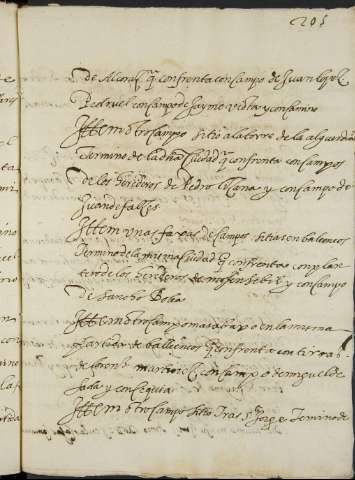 205
De Alcoraz q̃ confronta con campo de Juan lopez
Pedruel con campo de Jayme vista y con camino
Ittem otro campo sitio a la torre de la alguerdia
Termino de la dha Ciudad q̃ confronta con campos
De los herederos de Pedro loçana y con campo de
Juan de falces
Ittem unas faxas de campos sitias en balcencos
termino de la misma Ciudad q̃ confrentan con plan
de los herederos de mossen y con campo
De Sancho
Ittem otro campo mas abaxo en la misma
partida de balcencos q̃ confronta con tierra
de martinez con campo de miguel de
Jada y con cequia
Ittem otro campo sitio tras s. Jorge termino de